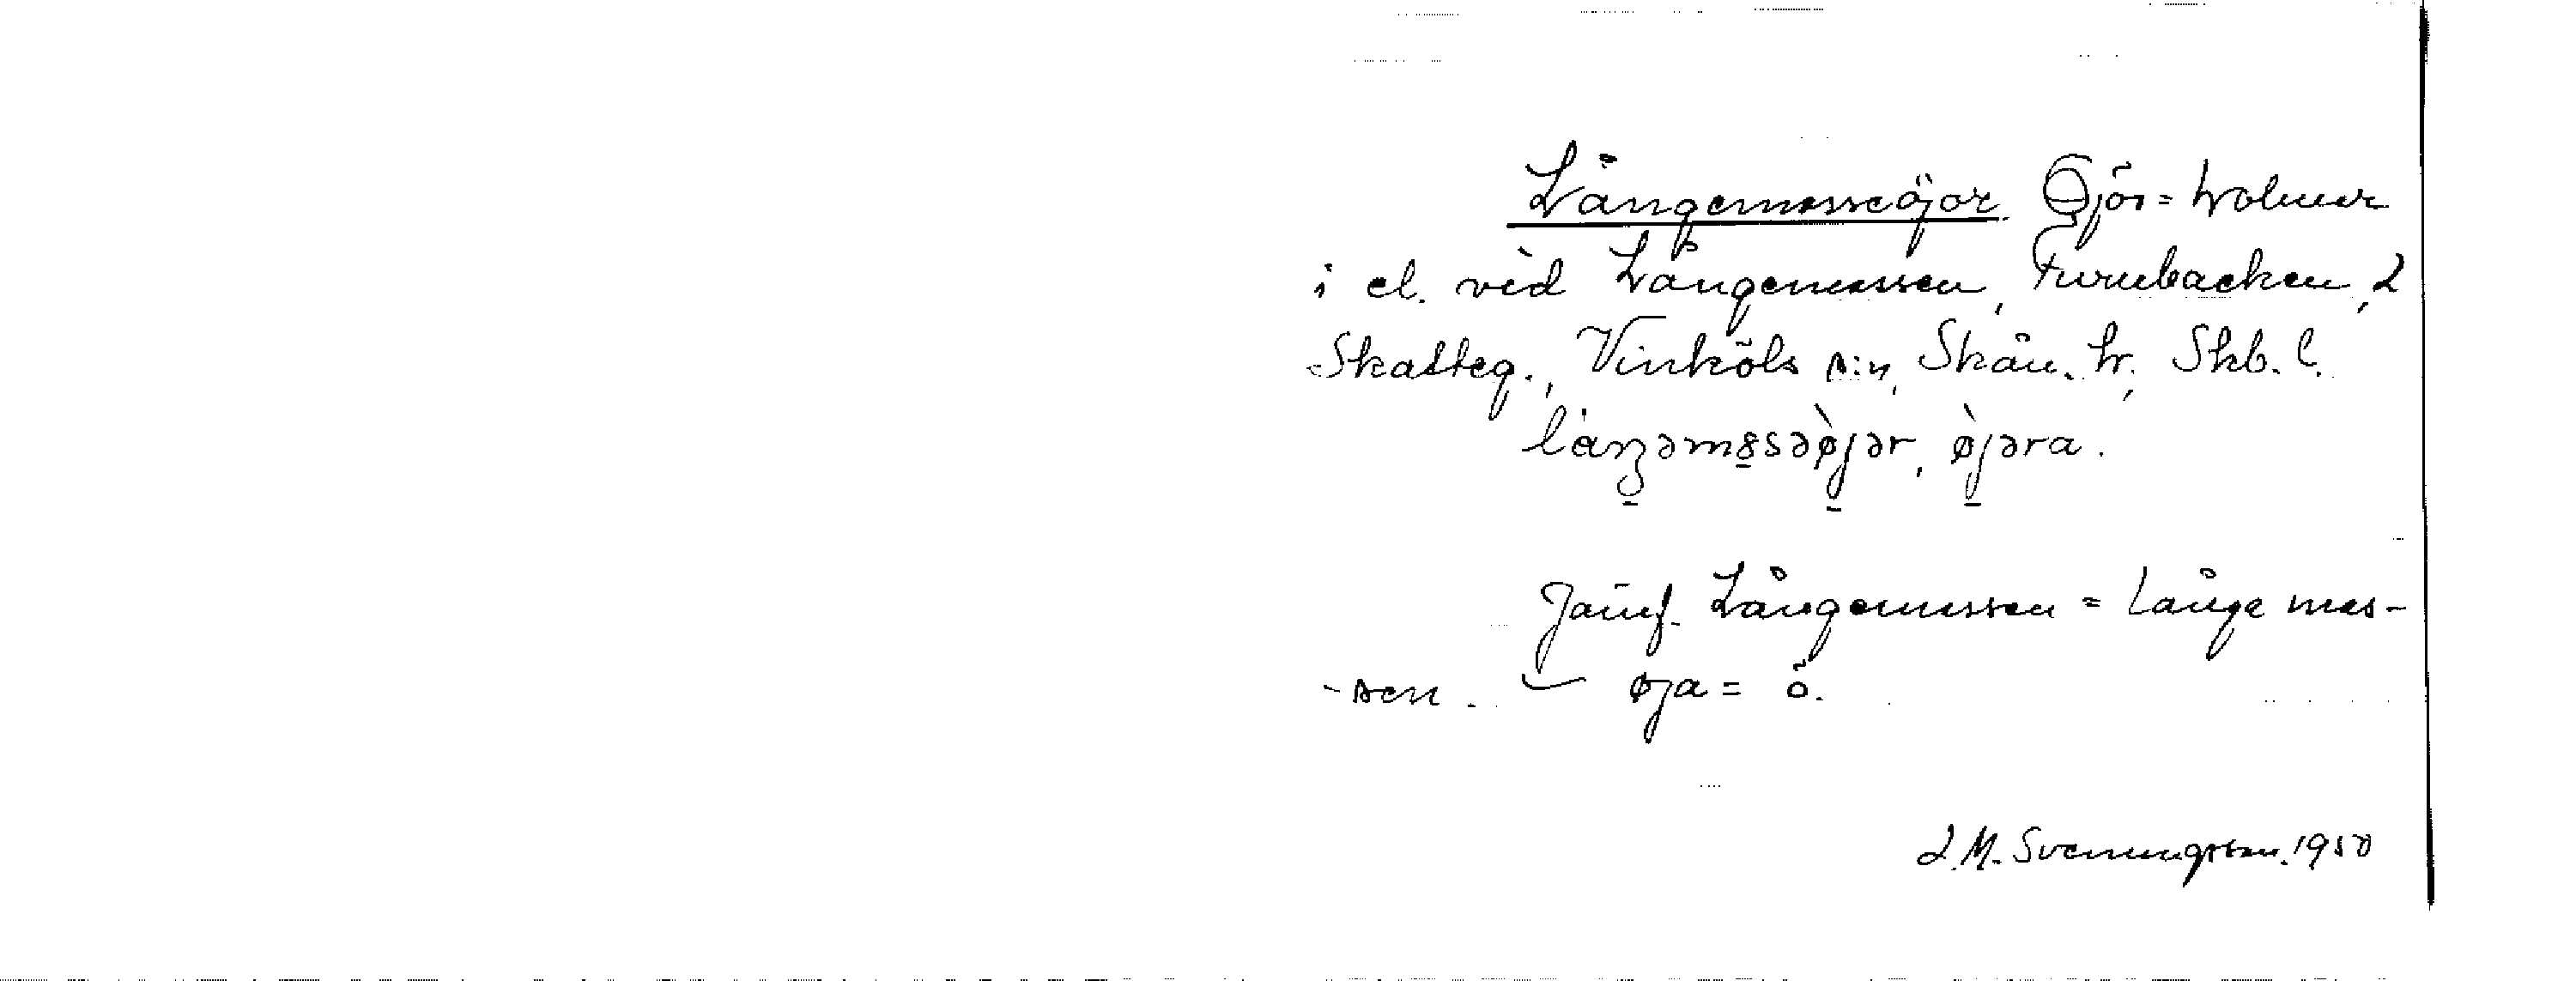 Långemosseöjor. Öjor = holmar
i el. vid Långemossen, Furubacken, 2
Skatteg., Vinköls s:n, Skån. hr, Skb. l.
låŋəmɷsəø̀jər, ø̀jəra.
Jämf. Långemossen = Långe mos-
-sen. øja = ö.
J. M. Svenungsson. 1950